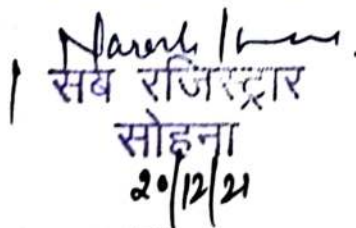 Naresh Kumar
सब रजिस्ट्रार
सोहना
20/12/21